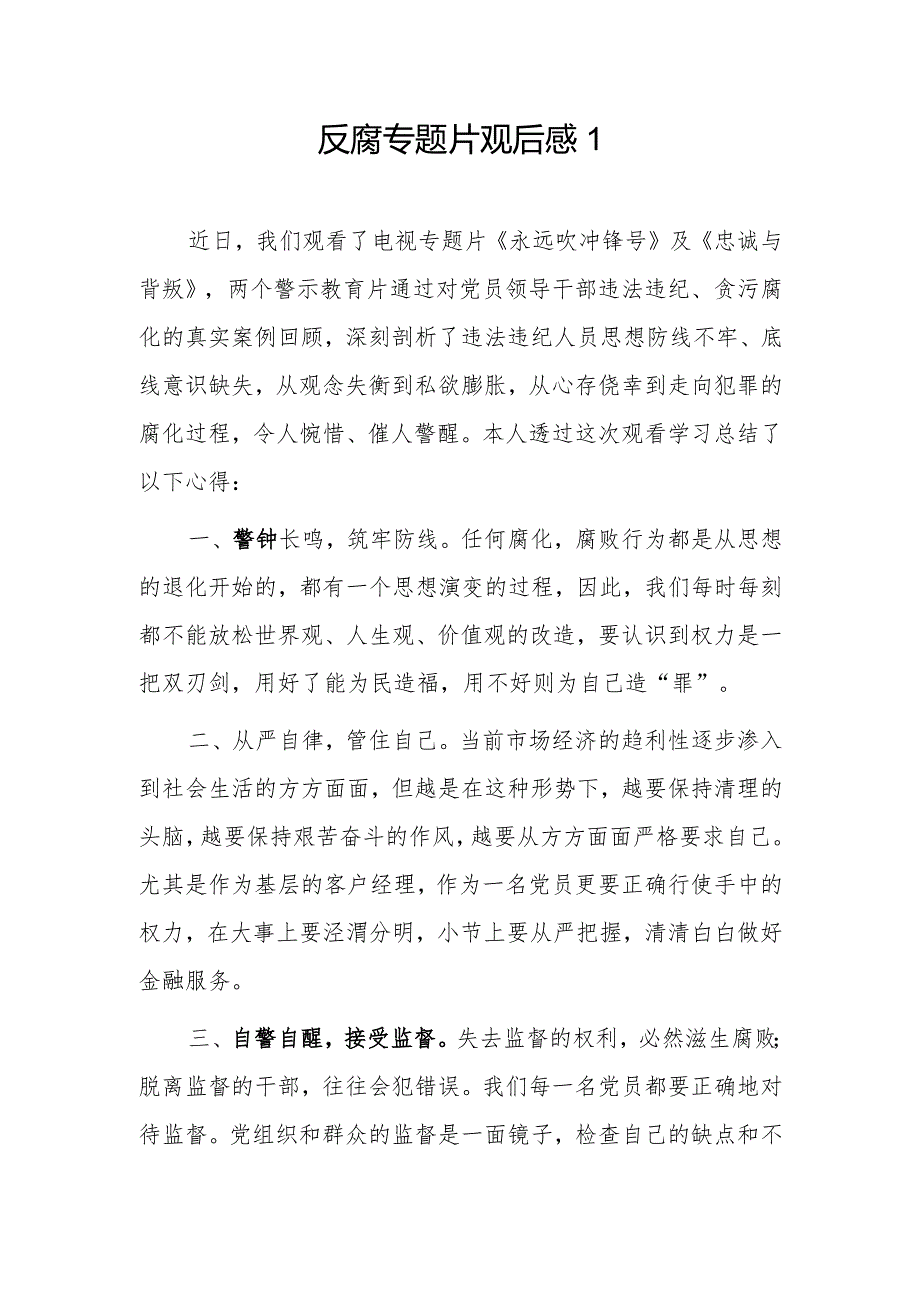 反腐专题片观后感 1
近日，我们观看了电视专题片《永远吹冲锋号》及《忠诚与
背叛》，两个警示教育片通过对党员领导干部违法违纪、贪污腐
化的真实案例回顾，深刻剖析了违法违纪人员思想防线不牢、底
线意识缺失，从观念失衡到私欲膨胀，从心存侥幸到走向犯罪的
腐化过程，令人惋惜、催人警醒。本人透过这次观看学习总结了
以下心得：
一、警钟长鸣，筑牢防线。任何腐化，腐败行为都是从思想
的退化开始的，都有一个思想演变的过程，因此，我们每时每刻
都不能放松世界观、人生观、价值观的改造，要认识到权力是一
把双刃剑，用好了能为民造福，用不好则为自己造“罪”。
二、从严自律，管住自己。当前市场经济的趋利性逐步渗入
到社会生活的方方面面，但越是在这种形势下，越要保持清理的
头脑，越要保持艰苦奋斗的作风，越要从方方面面严格要求自己。
尤其是作为基层的客户经理，作为一名党员更要正确行使手中的
权力，在大事上要泾渭分明，小节上要从严把握，清清白白做好
金融服务。
三、自警自醒，接受监督。失去监督的权利，必然滋生腐败；
脱离监督的干部，往往会犯错误。我们每一名党员都要正确地对
待监督。党组织和群众的监督是一面镜子，检查自己的缺点和不